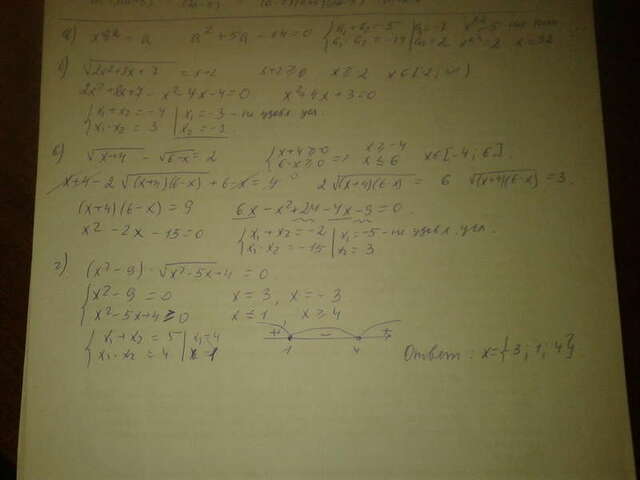 а) a² + 5a - 14 = 0 { a₁ + a₂ = -5 a₁ · a₂ = -14 | a₁ = -7 a₂ = 2 x = 32
б) √(2x²+8x+7) = x+2 x+2 ≥ 0
2x²+8x+7 - x² - 4x - 4 = 0 x² + 4x + 3 = 0
{ x₁ + x₂ = -4 x₁ · x₂ = 3 | x₁ = -3 - не удовл. усл. x₂ = -1
в) √(x+4) - √(6-x) = 2 { x+4 ≥ 0 6-x ≥ 0 => x ≥ -4 x ≤ 6 x∈[-4; 6].
x+4 - 2√((x+4)(6-x)) + 6-x = 4 2√((x+4)(6-x)) = 6 √((x+4)(6-x)) = 3.
(x+4)(6-x) = 9 6x - x² + 24 - 4x - 9 = 0.
x² - 2x - 15 = 0 { x₁ + x₂ = -2 x₁ · x₂ = -15 | x₁ = -5 - не удовл. усл. x₂ = 3
г) (x² - 9) · √(x² - 5x + 4) = 0.
{ x² - 9 = 0 x = 3, x = -3
x² - 5x + 4 ≥ 0 x ≤ 1 x ≥ 4
{ x₁ + x₂ = 5 x₁ · x₂ = 4 | x₁ = 4 x = 1 + - + 1 4 x
Ответ: x = {-3; 1; 4}.